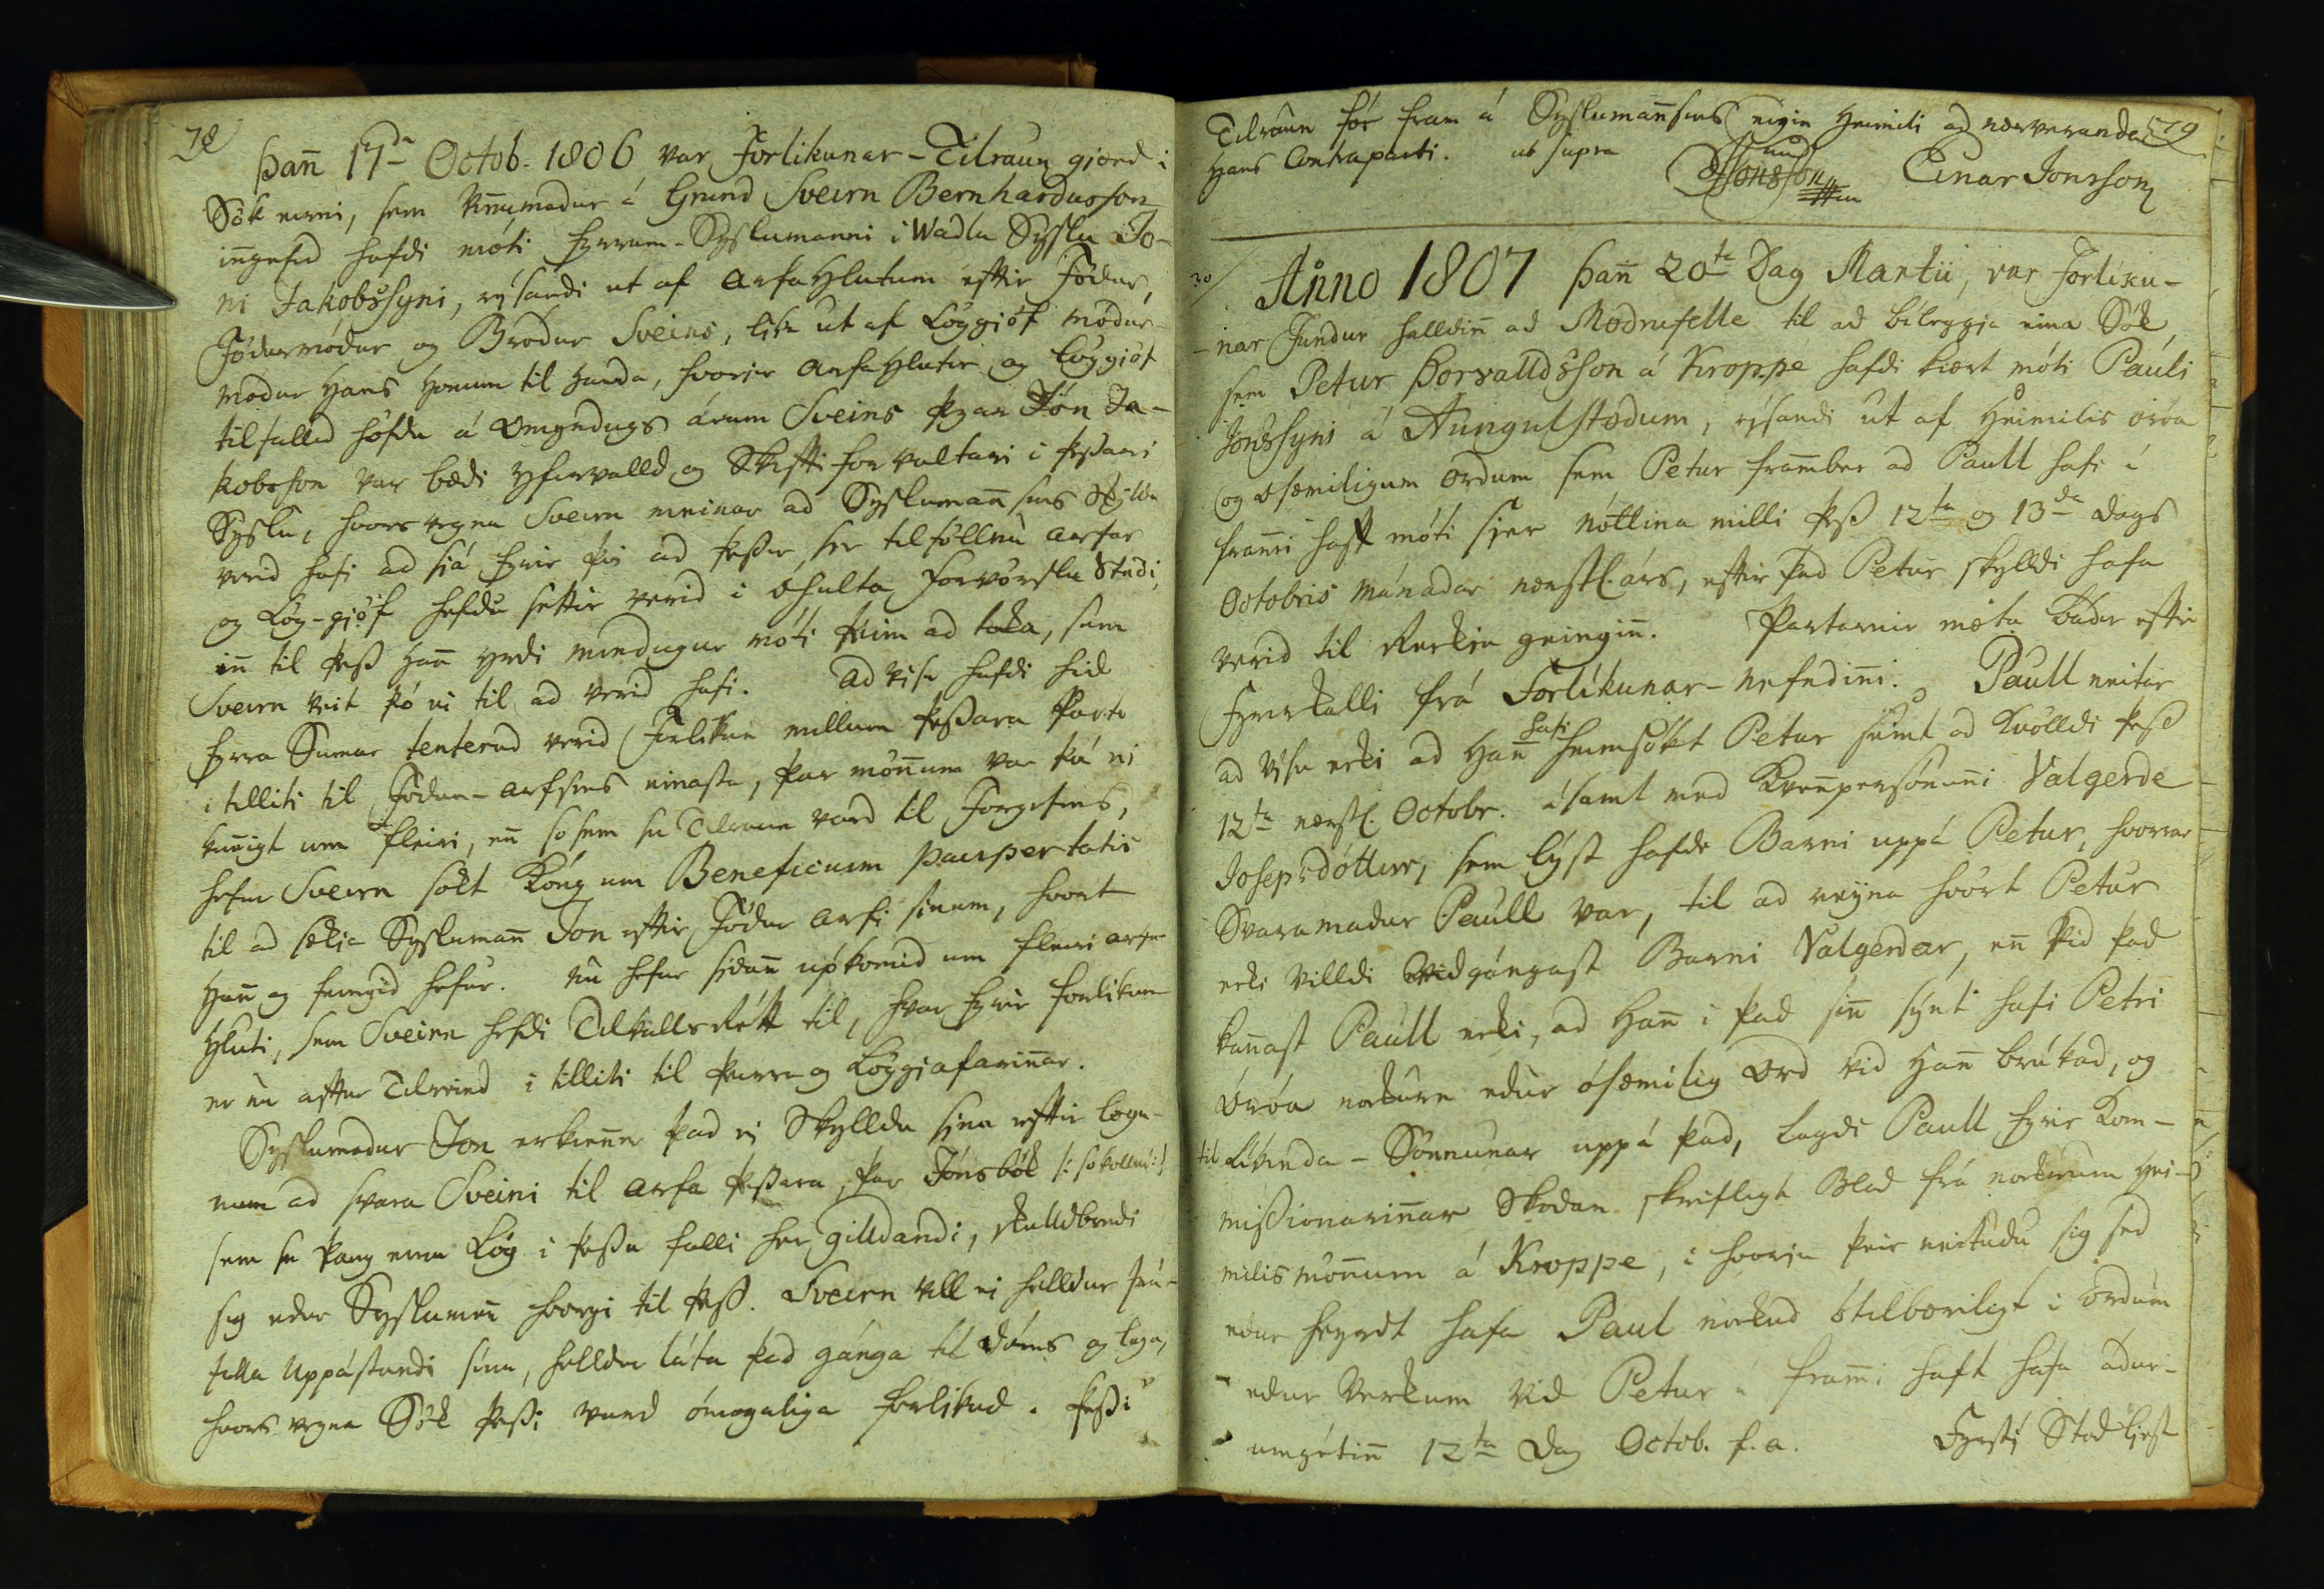 78
Þan̄ 17da Octob. 1806 var Forlikunar-Tilraun gjörd i
Sök einni, sem Vinnumadur á Grund Sveirn Bernhardusson
inngefid hafdi móti fyrrum-Syslumanni i Wadla Syslu Jo-
ni Jakobssyni, rísandi ut af arfahlutum eftir Födur,
Födurmódur og Brodur Sveins, lika ut af Löggjöf módur-
modur Hans honum til handa, hvorjir arfahlutir og Löggjöf
tilfallid höfdu á Omyndugs árum Sveins þegar Jón Ja-
kobsson var bædi yfirvalld og Skiftiforvaltari i þessari
Syslu, hvors vegna Sveirn meinar ad Syslumannsins Skyllda
verid hafi ad siá fyrir þvi ad þessir, sér tilföllnu arfar
og Lög-gjöf hefdu settir verid i óhulta Forvörslu Stadi,
inn til þess Hann yrdi mindugur móti þeim ad taka, sem
Sveirn veit þó ei til ad verid hafi. Ad visu hafdi hid
fyrra Sumar tenterud verid Forlikun millum þessara Parta
i tilliti til Födur-arfsins einasta, þar mönnum var þá ei
kunnigt um fleiri, en so sem su Tilraun vard til Forgefins,
hefur Sveirn sókt Kóng um Beneficium paupertatis
til ad sækia Syslumann Jon eftir Födur arfi sinum, hvort
Hann og feingid hefur. Nu hefur sidann uppkomid um fleiri arfa-
Hluti, sem Sveirn hefdi Tilkallsrétt til, hvar fyrir forlikun
er nu aftur Tilreind i tilliti til þeirra og Löggjafarinnar.
Syslumadur Jon erkienner þad ei Skylldu sina eftir Lögu-
num ad svara Sveini til arfa þessara, þar Jónsbók /: so kollud :/
sem su þaug einu Lög i þessu falli her gilldandi, skulldbindi
sig edur Syslumenn hvorgi til þess. Sveirn vill ei helldur frá-
falla Uppástandi sinu, helldur láta þad gánga til Dóms og laga,
hvors vegna Sök þessi vard ómögulega forlikud. Þessi
79
Tilraun fór fram á Syslumannsins eigin Heimili ad nærveranda
Hans Contraparti. ut supra
Jonsson Einar Jonsson
30/
Anno 1807 þann 20ta Dag Martii, var Forliku-
-nar Fundur halldinn ad Mödrufelle til ad bileggja eina Sök,
sem Petur Þorvalldsson á Kroppe hafdi kiært móti Páuli
Jonssyni á Aungulstödum, rísandi ut af Heimilis óróa
og ósæmiligum ordum sem Petur framber ad Paull hafi i
frammi haft móti sjer nóttina milli þess 12ta og 13da dags
Octobris mánadar næstl. árs, eftir þad Petur skylldi hafa
verid til Reckju geinginn. Partarnir mæta bádir eftir
Fyrirkalli frá Forlikunar-nefndinni. Paull neitar
ad visu ecki ad Hann hafi heimsókt Petur seint ad Kvölldi þess
12ta næstl. Octobr. ásamt med Kvennpersónunni Valgerde
Josepsdóttur, sem lýst hafde Barni uppá Petur, hvorrar
Svaramadur Paull var, til ad reyna hvört Petur
ecki villdi vidgángast Barni Valgerdar, en vid þad
kannast Paull ecki, ad Hann i þad sinn sýnt hafi Petri
óróa nockurn edur ósæmilig Ord vid Hann brúkad, og
til Líkinda-Sönnunar uppá þad, lagdi Paull fyrir Kom-
missionarinnar Skodan skriflegt Blad frá nockrum Hei-
milismönnum á Kroppe, i hvorju þeir neitudu sig sed
edur heyrdt hafa Paul nockud ótilbærilegt i Ordum
edur Verkum vid Petur i frammi haft hafa ádur-
umgétinn 12ta Dag Octob. f. a. Fyrst Stod liest